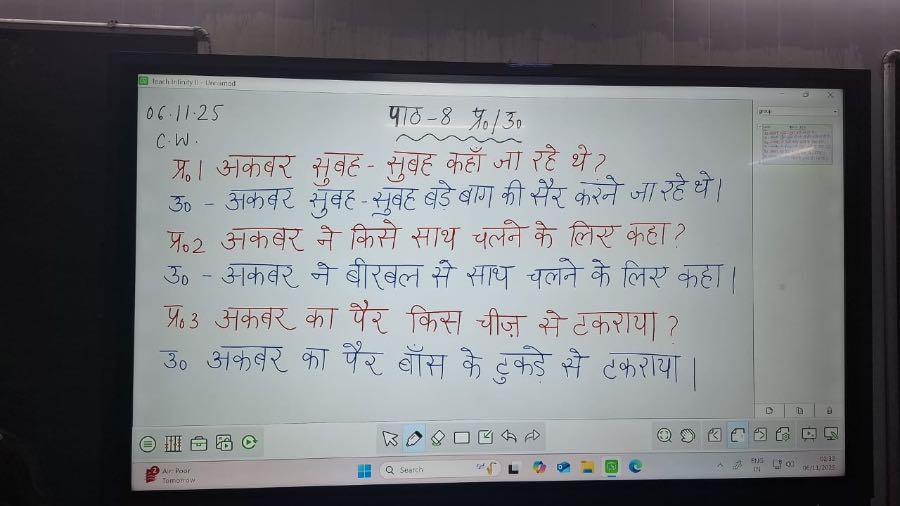 Teach Infinity || - Unnamed
06.11.25
पाठ-8 प्र०/उ०
C.W.
प्र०1 अकबर सुबह-सुबह कहाँ जा रहे थे?
उ० - अकबर सुबह-सुबह बड़े बाग की सैर करने जा रहे थे।
प्र०2 अकबर ने किसे साथ चलने के लिए कहा?
उ० - अकबर ने बीरबल से साथ चलने के लिए कहा।
प्र०3 अकबर का पैर किस चीज़ से टकराया?
उ० अकबर का पैर बाँस के टुकड़े से टकराया।
group
Air: Poor
Tomorrow
Search
ENG
IN
02:32
06/11/2025